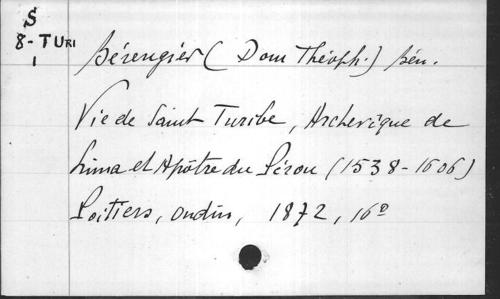 S
8-TURI
1
Bérengier (Dom Théoph.) bén.
Vie de Saint Turibe, Archevêque de
Lima et Apôtre du Pérou (1538-1606)
Poitiers, Oudin, 1872, 16º